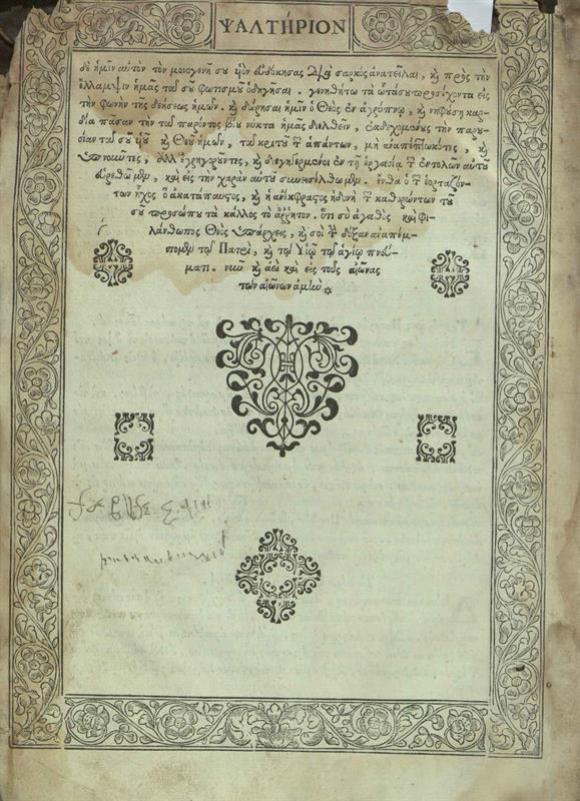 ΨΑΛΤΗΡΙΟΝ
δὸ ἡμῖν αὐτὸν τὸν μονογενῆ σου υἱὸν εὐδοκήσας διὰ σαρκὸς ἀνατεῖλαι, καὶ πρὸς τὴν
ἔλλαμψιν ἡμᾶς τοῦ σοῦ φωτισμοῦ ὁδηγῆσαι. γενηθήτω τὰ ὦτά σου προσέχοντα εἰς
τὴν φωνὴν τῆς δεήσεως ἡμῶν. καὶ δώρησαι ἡμῖν ὁ Θεὸς ἐν ἀγρύπνῳ, καὶ νηφούσῃ καρ
δίᾳ πᾶσαν τὴν τοῦ παρόντος βίου νύκτα ἡμᾶς διελθεῖν, ἐκδεχομένους τὴν παρου
σίαν τοῦ σοῦ υἱοῦ καὶ Θεοῦ ἡμῶν, τοῦ κριτοῦ τῶν ἁπάντων, μὴ ἀναπεπτωκότες, καὶ
ὑπνοῦντες, ἀλλ' ἐγρηγοροῦντες, καὶ διεγηγερμένοι ἐν τῇ ἐργασίᾳ τῶν ἐντολῶν αὐτοῦ
εὑρεθῶμεν, καὶ εἰς τὴν χαρὰν αὐτοῦ συνεισέλθωμεν. ἔνθα ὁ τῶν ἑορταζόν
των ἦχος ὁ ἀκατάπαυστος, καὶ ἡ ἀνέκφραστος ἡδονὴ τῶν καθορώντων τοῦ
σοῦ προσώπου τὸ κάλλος τὸ ἄρρητον. ὅτι σὺ ἀγαθὸς καὶ φι
λάνθρωπος Θεὸς ὑπάρχεις, καὶ σοὶ τὴν δόξαν ἀναπέμ
πομεν τῷ Πατρὶ, καὶ τῷ Υἱῷ τῷ ἁγίῳ πνεύ
ματι. νῦν καὶ ἀεὶ καὶ εἰς τοὺς αἰῶνας
τῶν αἰώνων ἀμήν